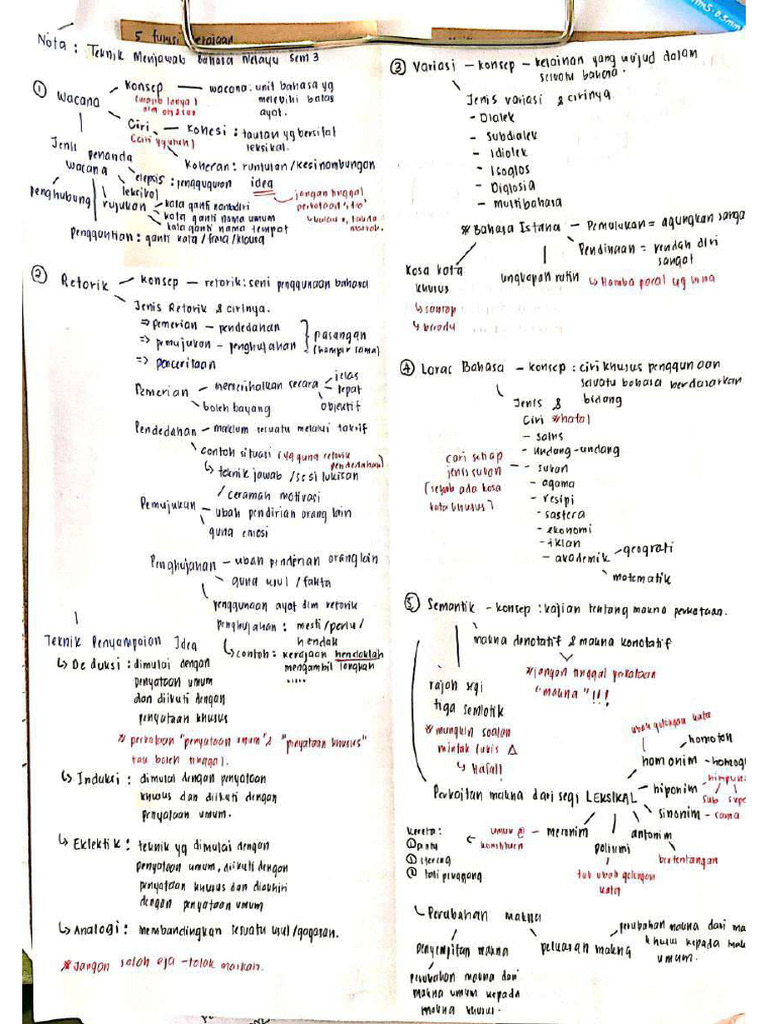 5 fungsi kerajaan
Nota : Teknik Menjawab Bahasa Melayu Sem 3
① Wacana
Konsep — wacana : unit bahasa yg
melebihi batas
ayat.
Ciri — Kohesi : tautan yg bersifat
leksikal.
(ciri yg utuh)
Koheran : runtutan/kesinambungan
Jenis penanda
wacana
elipsis : pengguguran idea
leksikal
penghubung
rujukan
kata ganti nama diri
kata ganti nama umum
kata ganti nama tempat
penggantian : ganti kata / frasa / klausa
jangan tinggal
② Retorik — konsep — retorik : seni penggunaan bahasa
Jenis Retorik & cirinya.
⇒ pemerian - pendedahan
⇒ pemujukan - penghujahan
⇒ penceritaan
pasangan
(hampir sama)
Pemerian — memerihalkan secara
jelas
tepat
objektif
boleh bayang
Pendedahan — maklum sesuatu melalui takrif
contoh situasi (yg guna retorik
pendedahan)
↳ teknik jawab / sesi lukisan
/ ceramah motivasi
Pemujukan — ubah pendirian orang lain
guna emosi
Penghujahan — ubah pendirian orang lain
guna usul / fakta
penggunaan ayat dlm retorik
penghujahan : mesti / perlu /
hendak
↳ contoh : kerajaan hendaklah
mengambil langkah
.....
Teknik Penyampaian Idea
↳ Deduksi : dimulai dengan
penyataan umum
dan diikuti dengan
penyataan khusus
* perkataan "penyataan umum" & "penyataan khusus"
tau boleh tinggal.
↳ Induksi : dimulai dengan penyataan
khusus dan diikuti dengan
penyataan umum.
↳ Eklektik : teknik yg dimulai dengan
penyataan umum, diikuti dengan
penyataan khusus dan diakhiri
dengan penyataan umum
↳ Analogi : membandingkan sesuatu usul / gagasan.
* Jangan salah eja - tolak markah.
③ Variasi — konsep — kelainan yang wujud dalam
sesuatu bahasa.
Jenis variasi & cirinya
- Dialek
- Subdialek
- Idiolek
- Isoglos
- Diglosia
- multibahasa
* Bahasa Istana — Pemulukan = agungkan sangat
Pendinaan = rendah diri
sangat
kosa kata
khusus
↳ santap
↳ beradu
ungkapan rutin
↳ Hamba pacal yg hina
④ Laras Bahasa — konsep : ciri khusus penggunaan
sesuatu bahasa berdasarkan
bidang
Jenis &
Ciri *hafal
- sains
- undang-undang
- sukan
- agama
- resipi
- sastera
- ekonomi
- iklan
- akademik
geografi
matematik
cari setiap
jenis sukan
(sebab ada kosa
kata khusus)
⑤ Semantik — konsep : kajian tentang makna perkataan.
makna denotatif & makna konotatif
* jangan tinggal perkataan
"makna" !!!
rajah segi
tiga semiotik
* mungkin soalan
mintak lukis △
↳ Hafal!
Perkaitan makna dari segi LEKSIKAL
ubah golongan kata
homonim
homofon
homog
hiponim
sub
sinonim — sama
antonim
bertentangan
polisemi
tak ubah golongan
kata
meronim
kereta :
① pintu
② stereng
③ tali pinggang
Perubahan makna
penyempitan makna
perubahan makna dari
makna umum kepada
makna khusus.
peluasan makna
perubahan makna dari ma
khusus kepada mak
umum.